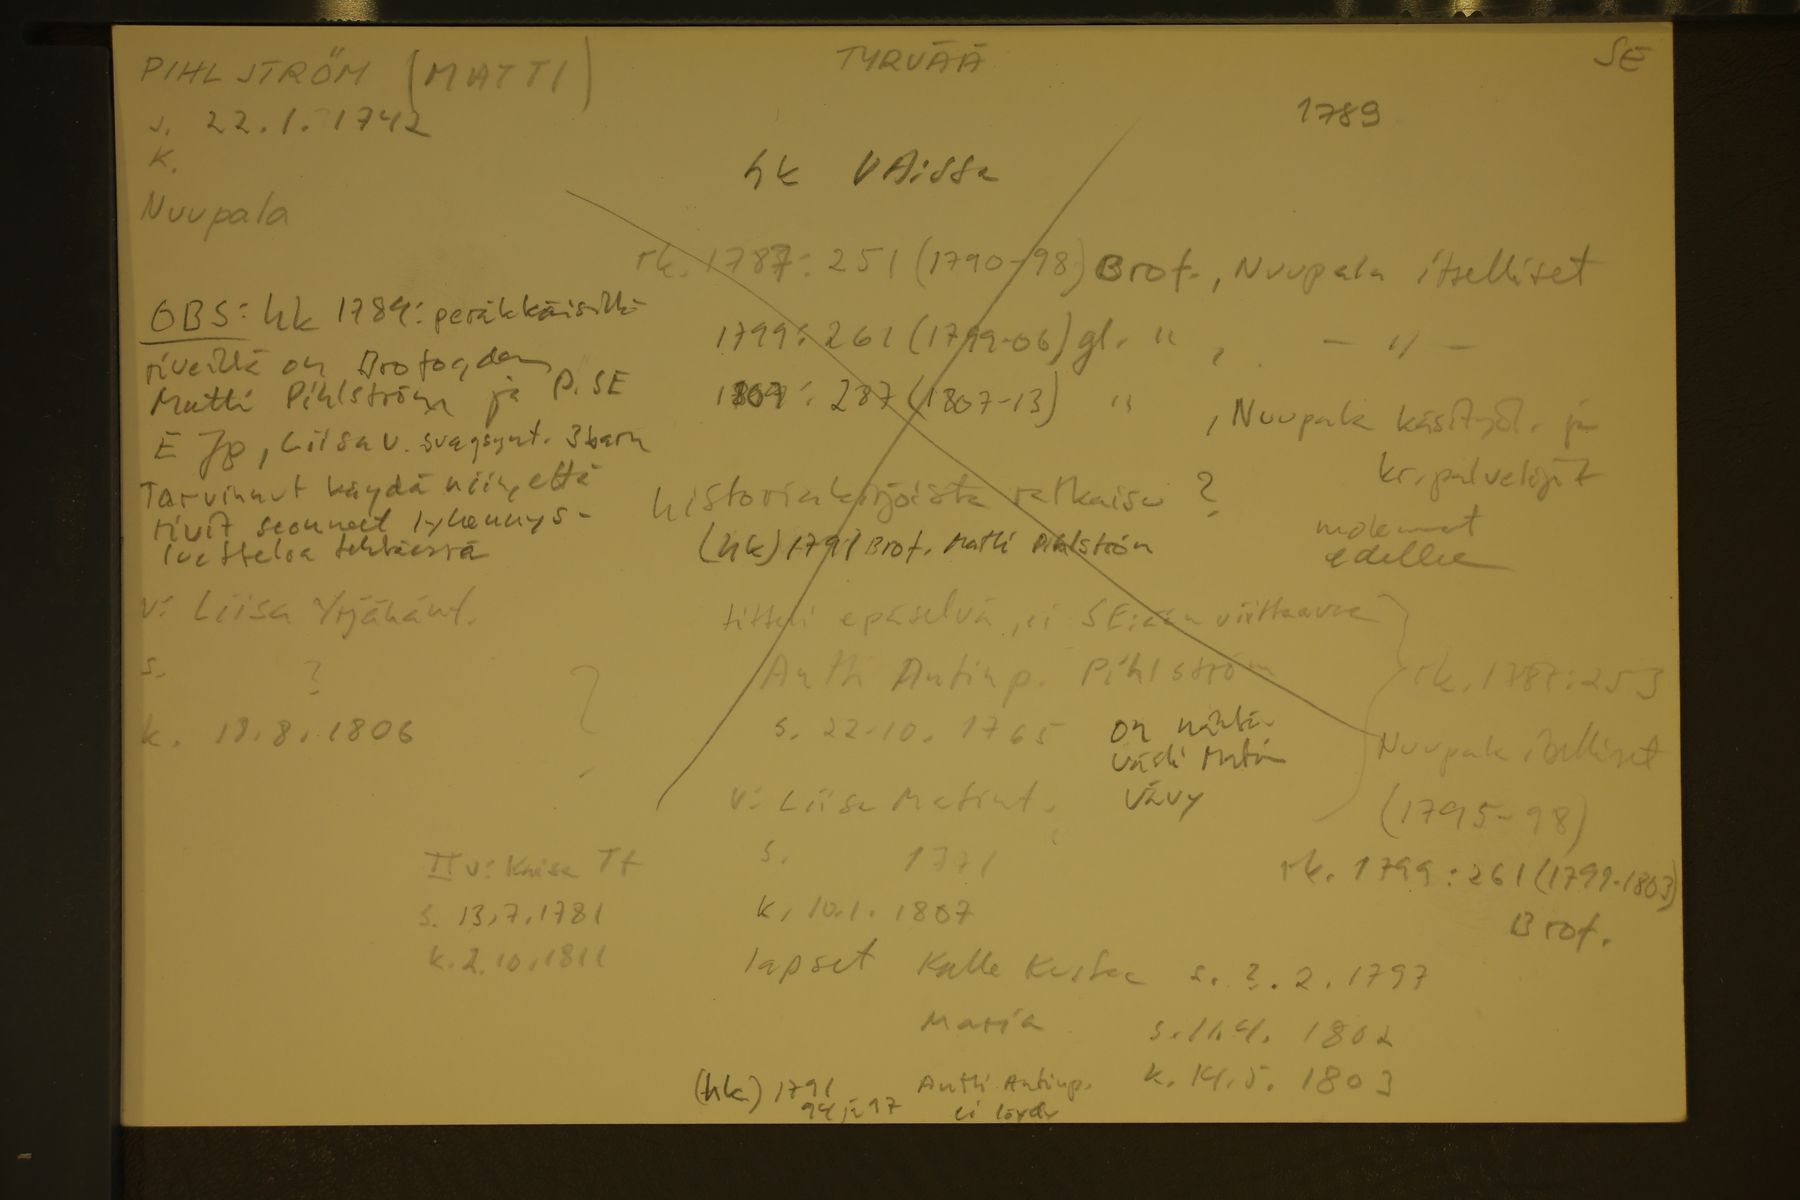 PIHLSTRÖM (MATTI)
TYRVÄÄ
SE
s. 22.1.1742
1789
k.
hk VÄissa
Nuupala
rk. 1787: 251 (1790-98) Brof., Nuupala itselliset
1799: 261 (1799-06) gl. " , - " -
1807: 287 (1807-13) " , Nuupala käsityöl. ja
kr. palvelijat
molemmat
edellee
OBS: hk 1789: peräkkäisillä
riveillä on Brofogden
Matti Pihlström ja P. SE
E Jp, Liisa v. 3 barn
Tarvinnut käydä niin, että
rivit seonneet lyhennys-
luetteloa tehtäessä
historiankirjoista ratkaisu ?
(hk) 1791 Brof. Matti Pihlström
titteli epäselvä, ei SE:een viittaavaa
v: Liisa Yrjänänt.
s. ?
k. 18.8.1806
?
Antti Antinp. Pihlström
s. 22.10.1765
on nähtä-
västi Matin
vävy
rk. 1787: 253
Nuupala itselliset
(1795-98)
rk. 1799: 261 (1799-1803)
Brof.
v: Liisa Matint.
s. 1771
k. 10.1.1807
II v: Kaisa Tt
s. 13.7.1781
k. 2.10.1811
lapset Kalle Kustaa s. 3.2.1797
Maria s. 11.4.1802
k. 14.5.1803
(hk) 1791 Antti Antinp.
94 ja 97 ei löydy